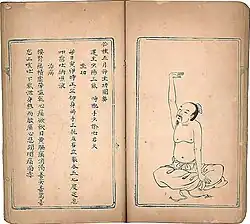 芒種五月節坐功圖
運主少陰三氣 時配手少陰心君火
坐功
每日寅卯時正立仰身兩手上托左右力舉各五七度定息
叩齒吐納嚥液
治病
腰腎蘊積虛勞嗌乾心痛欲飲目黃脇痛消渴善笑善驚善
忘上咳吐下氣洩身熱而股痛心悲頭項痛面赤